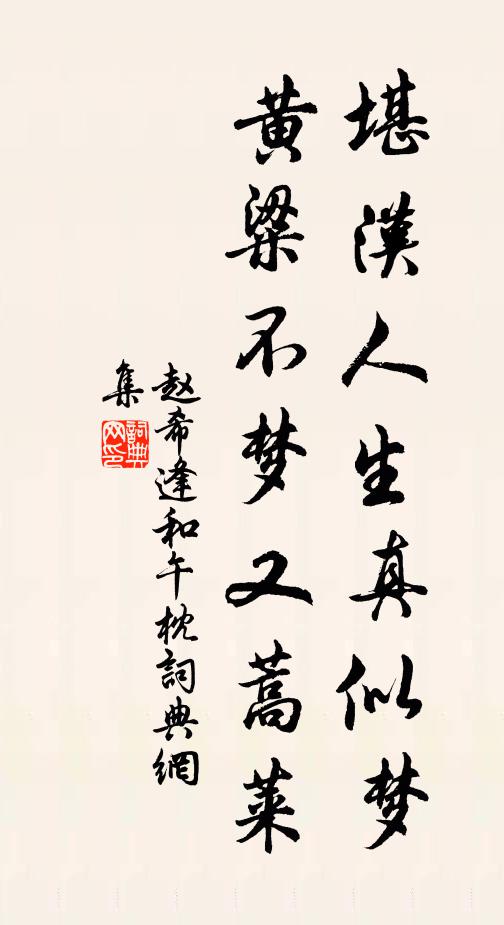 堪漢人生真似梦
黄粱不梦又蒿莱
赵希逢和午枕詞典網
集
詞典
网印